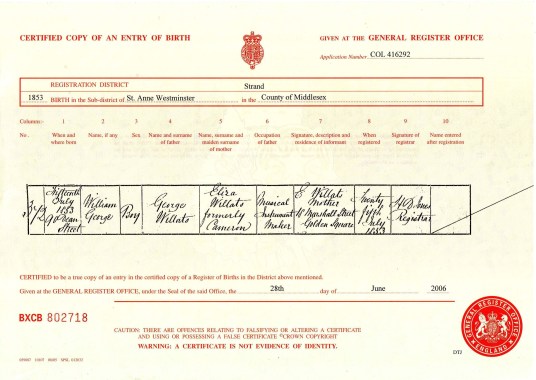 CERTIFIED COPY OF AN ENTRY OF BIRTH
GIVEN AT THE GENERAL REGISTER OFFICE
Application Number COL 416292
REGISTRATION DISTRICT Strand
1853 BIRTH in the Sub-district of St. Anne Westminster in the County of Middlesex
Columns:- 1 2 3 4 5 6 7 8 9 10
No. When and where born Name, if any Sex Name and surname of father Name, surname and maiden surname of mother Occupation of father Signature, description and residence of informant When registered Signature of registrar Name entered after registration
Fifteenth July 1853 90 Dean Street
William George
Boy
George Willats
Eliza Willats formerly Cameron
Musical Instrument Maker
E Willats Mother 16 Marshall Street Golden Square
Twenty fifth July 1853
Registrar
CERTIFIED to be a true copy of an entry in the certified copy of a Register of Births in the District above mentioned.
Given at the GENERAL REGISTER OFFICE, under the Seal of the said Office, the 28th day of June 2006
BXCB 802718
CAUTION: THERE ARE OFFENCES RELATING TO FALSIFYING OR ALTERING A CERTIFICATE
AND USING OR POSSESSING A FALSE CERTIFICATE ©CROWN COPYRIGHT
WARNING: A CERTIFICATE IS NOT EVIDENCE OF IDENTITY.
GENERAL REGISTER OFFICE
ENGLAND